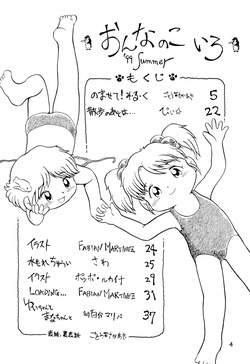 おんなのこ いろ
'99 Summer
もくじ
のませて！みるく 5
散歩のあとは… 22
イラスト FABIAN MARTINEZ 24
水もれちゅうい さわ 25
イラスト ポッポ・ルカイナ 29
LOADING... FABIAN MARTINEZ 31
ゆいちゃんと
まなちゃんと 37
4